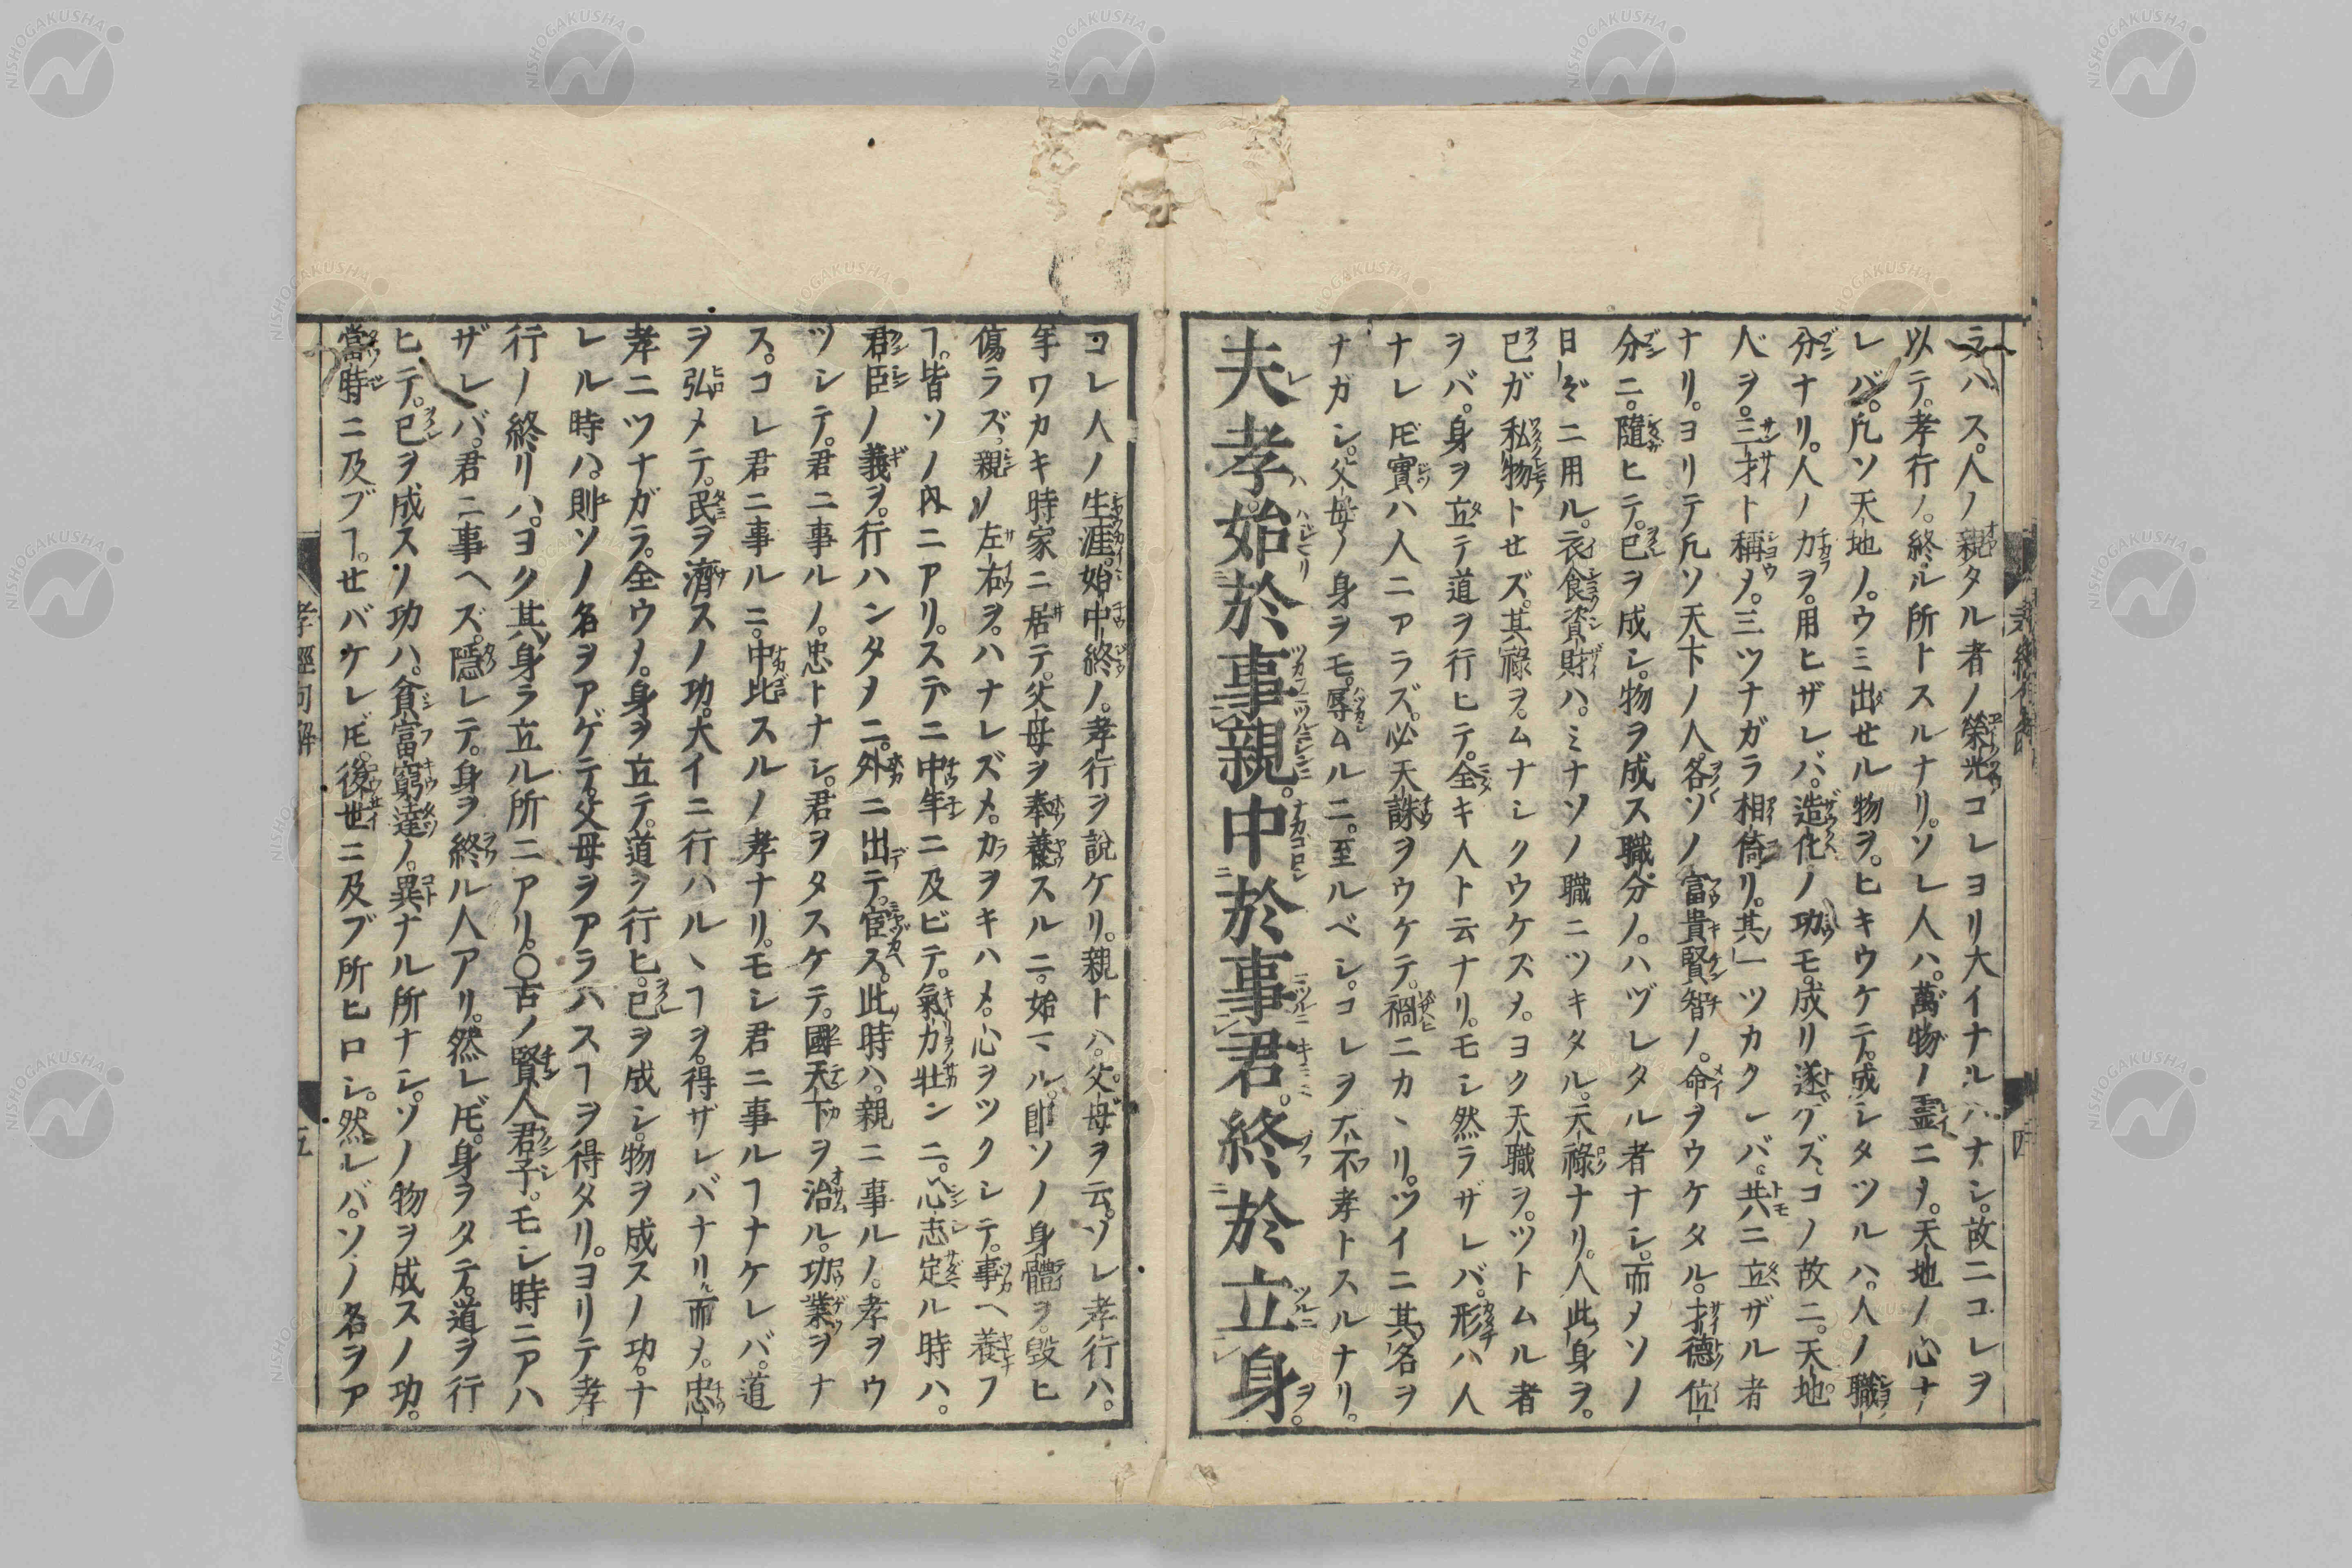 ラハス。人ノ親タル者ノ榮光コレヨリ大イナルハナシ。故ニコレヲ
以テ。孝行ノ。終ル所トスルナリ。ソレ人ハ。萬物ノ霊ニメ。天地ノ心ナ
レバ。凡ソ天地ノ。ウミ出セル物ヲ。ヒキウケテ。成シタツルハ。人ノ職
分ナリ。人ノ力ヲ。用ヒザレバ。造化ノ功モ。成リ遂ゲズ。コノ故ニ。天地
人ヲ。三才ト稱メ。三ツナガラ相倚リ。其一ツカクレバ。共ニ立ザル者
ナリ。ヨリテ凡ソ天下ノ人。各ソノ富貴賢智ノ。命ヲウケタル。才德位
分ニ。隨ヒテ。己ヲ成シ。物ヲ成ス職分ノ。ハヅレタル者ナシ。而メソノ
日〻ニ用ル。衣食資財ハ。ミナソノ職ニツキタル。天祿ナリ。人此身ヲ。
己ガ私物トセズ。其祿ヲ。ムナシクウケズメ。ヨク天職ヲ。ツトムル者
ヲバ。身ヲ立テ道ヲ行ヒテ。全キ人ト云ナリ。モシ然ラザレバ。形ハ人
ナレ𪜈實ハ人ニアラズ。必天誅ヲウケテ。禍ニカヽリ。ツイニ其名ヲ
ナガシ。父母ノ身ヲモ。辱ムルニ。至ルベシ。コレヲ大不孝トスルナリ。
夫孝始於事親。中於事君。終於立身。
コレ人ノ生涯。始中終ノ。孝行ヲ說ケリ。親トハ。父母ヲ云。ソレ孝行ハ。
年ワカキ時家ニ居テ。父母ヲ奉養スルニ。始マル。卽ソノ身體ヲ。毀ヒ
傷ラズ。親ノ左右ヲ。ハナレズメ。力ヲキハメ。心ヲツクシテ。事ヘ養フ
ヿ。皆ソノ內ニアリ。ステニ中年ニ及ビテ。氣力壯ンニ。心志定ル時ハ。
君臣ノ義ヲ。行ハンタメニ。外ニ出テ。宦ス。此時ハ。親ニ事ルノ。孝ヲウ
ツシテ。君ニ事ルノ。忠トナシ。君ヲタスケテ。國天下ヲ治ル。功業ヲナ
ス。コレ君ニ事ルニ。中比スルノ孝ナリ。モシ君ニ事ルヿナケレバ。道
ヲ弘メテ。民ヲ濟スノ功。大イニ行ハルヽヿヲ。得ザレバナリ。而メ。忠
孝ニツナガラ。全ウメ。身ヲ立テ。道ヲ行ヒ。己ヲ成シ。物ヲ成スノ功。ナ
レル時ハ。則ソノ名ヲアゲテ。父母ヲアラハスヿヲ得タリ。ヨリテ孝
行ノ終リハ。ヨク其身ヲ立ル所ニアリ。○古ノ賢人君子。モシ時ニアハ
ザレバ。君ニ事ヘズ。隱レテ。身ヲ終ル人アリ。然レ𪜈。身ヲタテ。道ヲ行
ヒテ。己ヲ成スノ功ハ。貧富窮達ノ。異ナル所ナシ。ソノ物ヲ成スノ功。
當時ニ及ブヿ。セバケレ𪜈。後世ニ及ブ所ヒロシ。然レバ。ソノ名ヲア
孝經句解
五